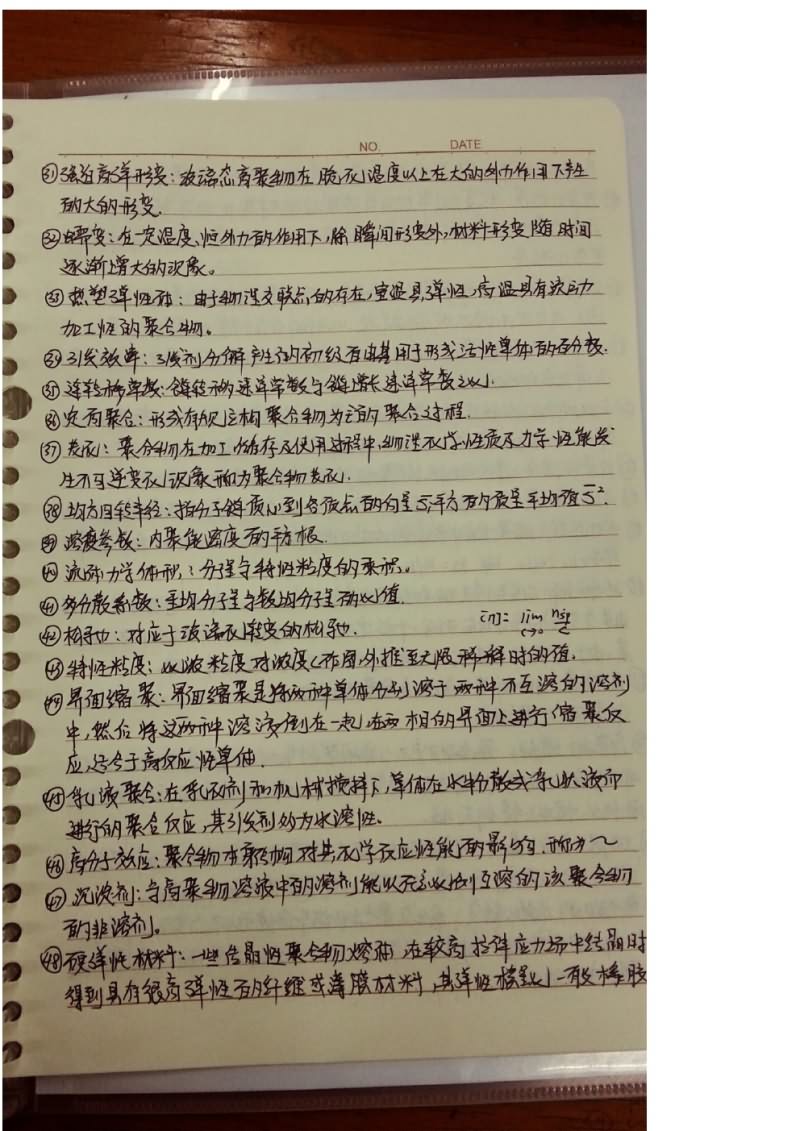 NO. DATE
㉛强迫高弹形变：玻璃态高聚物在脆化温度以上在大的外力作用下产生
的大的形变.
㉜蠕变：在一定温度、恒外力的作用下，除瞬间形变外，材料形变随时间
逐渐增大的现象。
㉝热塑弹性体：由于物理交联点的存在，室温具弹性，高温具有流动
加工性的聚合物。
㉞引发效率：引发剂分解产生的初级自由基用于形成活性单体的百分数.
㉟链转移常数：链转移速率常数与链增长速率常数之比.
㊱定向聚合：形成有规立构聚合物为主的聚合过程.
㊲老化：聚合物在加工、储存及使用过程中，物理化学性质及力学性能发
生不可逆变化现象称为聚合物老化.
㊳均方回转半径：指分子链质心到各质点的向量S平方的质量平均值S̄².
㊴溶度参数：内聚能密度的平方根.
㊵流体力学体积：分子量与特性粘度的乘积。
㊶多分散系数：重均分子量与数均分子量的比值.
㊷构象：对应于玻璃化转变的
[η]= lim ηsp/c c→0
㊸特性粘度：比浓粘度对浓度C作图，外推至无限稀释时的值.
㊹界面缩聚：界面缩聚是将两种单体分别溶于两种不互溶的溶剂
中，然后将这两种溶液倒在一起，在两相的界面上进行缩聚反
应，适合于高反应性单体.
㊺乳液聚合：在乳化剂和机械搅拌下，单体在水中分散成乳状液而
进行的聚合反应，其引发剂必为水溶性。
㊻高分子效应：聚合物本身对其化学反应性能的影响，称为～
㊼沉淀剂：与高聚物溶液中的溶剂能以任意比例互溶的该聚合物
的非溶剂。
㊽硬弹性材料：一些结晶性聚合物熔体，在较高拉伸应力场中结晶时
得到具有很高弹性的纤维或薄膜材料，其弹性模量比一般橡胶